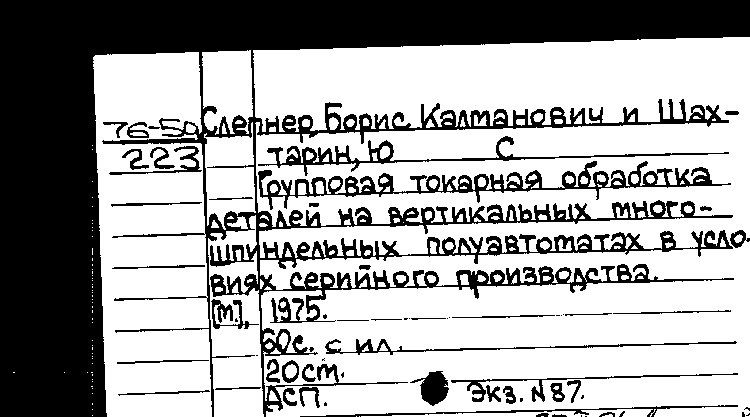 76-50 Слепнер, Борис Калманович и Шах-
223 тарин, Ю С
Групповая токарная обработка
деталей на вертикальных много-
шпиндельных полуавтоматах в усло-
виях серийного производства.
[М.], 1975.
60с. с ил.
20см.
ДСП. Экз. N 87.